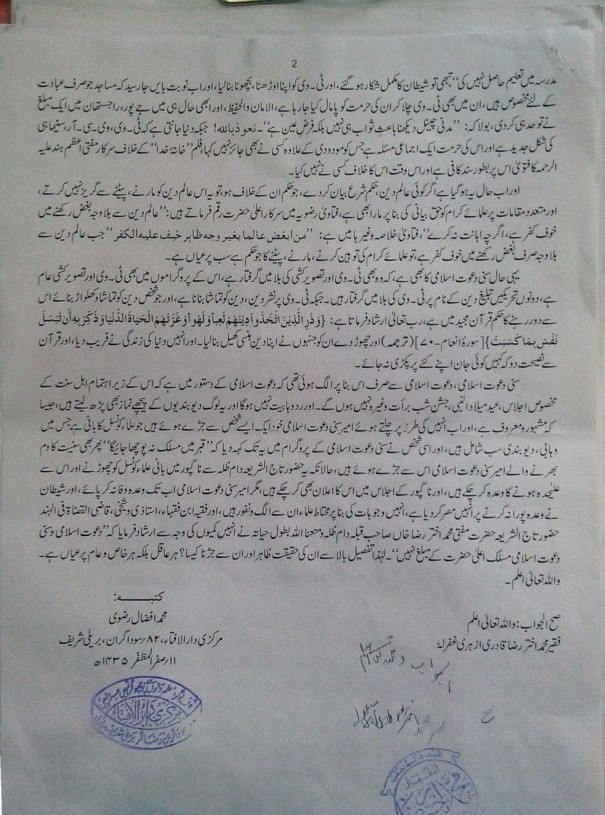 2
مدرسہ میں تعلیم حاصل نہیں کی" تبھی تو شیطان کا مکمل شکار ہو گئے، اور ٹی۔وی کو اپنا اوڑھنا، بچھونا بنا لیا، اور اب نوبت بایں جا رسید کہ مساجد جو صرف عبادت
کے لئے مخصوص ہیں، ان میں بھی ٹی۔وی چلا کر ان کی حرمت کو پامال کیا جا رہا ہے، الامان والحفیظ، اور ابھی حال ہی میں جے پور، راجستھان میں ایک مبلغ
نے تو حد ہی کر دی، بولا کہ: "مدنی چینل دیکھنا باعث ثواب ہی نہیں بلکہ فرض عین ہے"۔ نعوذ باللہ! جبکہ دنیا جانتی ہے کہ ٹی۔وی، وی۔سی۔آر، سنیما ہی
کی شکل جدید ہے اور اس کی حرمت ایک اجماعی مسئلہ ہے جس کو مودودی کے علاوہ کسی نے بھی جائز نہیں کہا، فلم "خانۂ خدا" کے خلاف سرکار مفتی اعظم ہند علیہ
الرحمہ کا فتویٰ اس پر بطور سند کافی ہے اور اس وقت اس کا خلاف کسی نے نہیں کیا۔
اور اب حال یہ ہو گیا ہے اگر کوئی عالم دین، حکم شرع بیان کر دے، جو حکم ان کے خلاف ہو، تو یہ اس عالم دین کو مارنے، پیٹنے سے گریز نہیں کرتے،
اور متعدد مقامات پر علمائے کرام کو حق بیانی کی بنا پر مارا بھی ہے، فتاویٰ رضویہ میں سرکار اعلیٰ حضرت رقم فرماتے ہیں: "عالم دین سے بلا وجہ بغض رکھنے میں
خوف کفر ہے، اگرچہ اہانت نہ کرے"، فتاویٰ خلاصہ وغیرہا میں ہے: "من ابغض عالما بغیر وجہ ظاہر خیف علیہ الکفر" جب عالم دین سے
بلا وجہ صرف بغض رکھنے میں خوف کفر ہے، تو علمائے کرام کی توہین کرنے، مارنے، پیٹنے کا جو حکم ہے سب پر عیاں ہے۔
یہی حال سنی دعوت اسلامی کا بھی ہے، کہ وہ بھی ٹی۔وی اور تصویر کشی کی بلا میں گرفتار ہے، اس کے پروگراموں میں بھی ٹی۔وی اور تصویر کشی عام
ہے، دونوں تحریکیں تبلیغ دین کے نام پر ٹی۔وی کی بلا میں گرفتار ہیں۔ جبکہ ٹی۔وی پر نشر دین، دین کو تماشا بنانا ہے، اور جو شخص دین کو تماشا و کھلواڑ بنائے اس
سے دور رہنے کا حکم قرآن مجید میں ہے، رب تعالیٰ ارشاد فرماتا ہے: {وَذَرِ الَّذِينَ اتَّخَذُوا دِينَهُمْ لَعِبًا وَلَهْوًا وَغَرَّتْهُمُ الْحَيَاةُ الدُّنْيَا وَذَكِّرْ بِهِ أَن تُبْسَلَ
نَفْسٌ بِمَا كَسَبَتْ} [سورۂ انعام۔۷۰] (ترجمہ) اور چھوڑ دے ان کو جنہوں نے اپنا دین ہنسی کھیل بنا لیا۔ اور انہیں دنیا کی زندگی نے فریب دیا، اور قرآن
سے نصیحت دو کہ کہیں کوئی جان اپنے کئے پر پکڑی نہ جائے۔
سنی دعوت اسلامی، دعوت اسلامی سے صرف اس بنا پر الگ ہوئی تھی کہ دعوت اسلامی کے دستور میں ہے کہ اس کے زیر اہتمام اہل سنت کے
مخصوص اجلاس، عید میلاد النبی، جشن شب برأت وغیرہ نہیں ہوں گے۔ اور رد وہابیت نہیں ہوگا اور یہ لوگ دیوبندیوں کے پیچھے نماز بھی پڑھ لیتے ہیں، جیسا
کہ مشہور و معروف ہے، اور اب انہیں کی طرز پر چلتے ہوئے امیر سنی دعوت اسلامی خود ایک ایسے شخص سے جڑے ہوئے ہیں جو علما کونسل کا بانی ہے جس میں
وہابی، دیوبندی سب شامل ہیں، اور اسی شخص نے سنی دعوت اسلامی کے پروگرام میں یہ تک کہہ دیا کہ "قبر میں مسلک نہ پوچھا جائیگا" پھر بھی سنیت کا دم
بھرنے والے امیر سنی دعوت اسلامی اس سے جڑے ہوئے ہیں، حالانکہ یہ حضور تاج الشریعہ دام ظلہ سے ناگپور میں بانی علما کونسل کو چھوڑنے اور اس سے
علیٰحدہ ہونے کا وعدہ کر چکے ہیں، اور ناگپور کے اجلاس میں اس کا اعلان بھی کر چکے ہیں، مگر امیر سنی دعوت اسلامی اب تک وعدہ وفا نہ کر پائے، اور شیطان
نے وعدہ پورا نہ کرنے پر انہیں مصر کر دیا ہے، انہیں وجوہات کی بنا پر محتاط علماء ان سے الگ و نفور ہیں، اور فقیہ ابن فقہاء، استاذی و شیخی، قاضی القضاۃ فی الہند
حضور تاج الشریعہ حضرت مفتی محمد اختر رضا خاں صاحب قبلہ دام ظلہ و متعنا اللہ بطول حیاتہ نے انہیں کمیوں کی وجہ سے ارشاد فرمایا کہ "دعوت اسلامی و سنی
دعوت اسلامی مسلک اعلیٰ حضرت کے مبلغ نہیں"۔ لہٰذا تفصیل بالا سے ان کی حقیقت ظاہر اور ان سے جڑنا کیسا؟ ہر عاقل بلکہ ہر خاص و عام پر عیاں ہے۔
واللہ تعالیٰ اعلم۔
صح الجواب: واللہ تعالیٰ اعلم
فقیر محمد اختر رضا قادری ازہری غفرلہٗ
کتبـــــہ:
محمد افضال رضوی
مرکزی دارالافتاء، ۸۲ رسوداگران، بریلی شریف
۱۱ رصفر المظفر ۱۴۳۵ھ